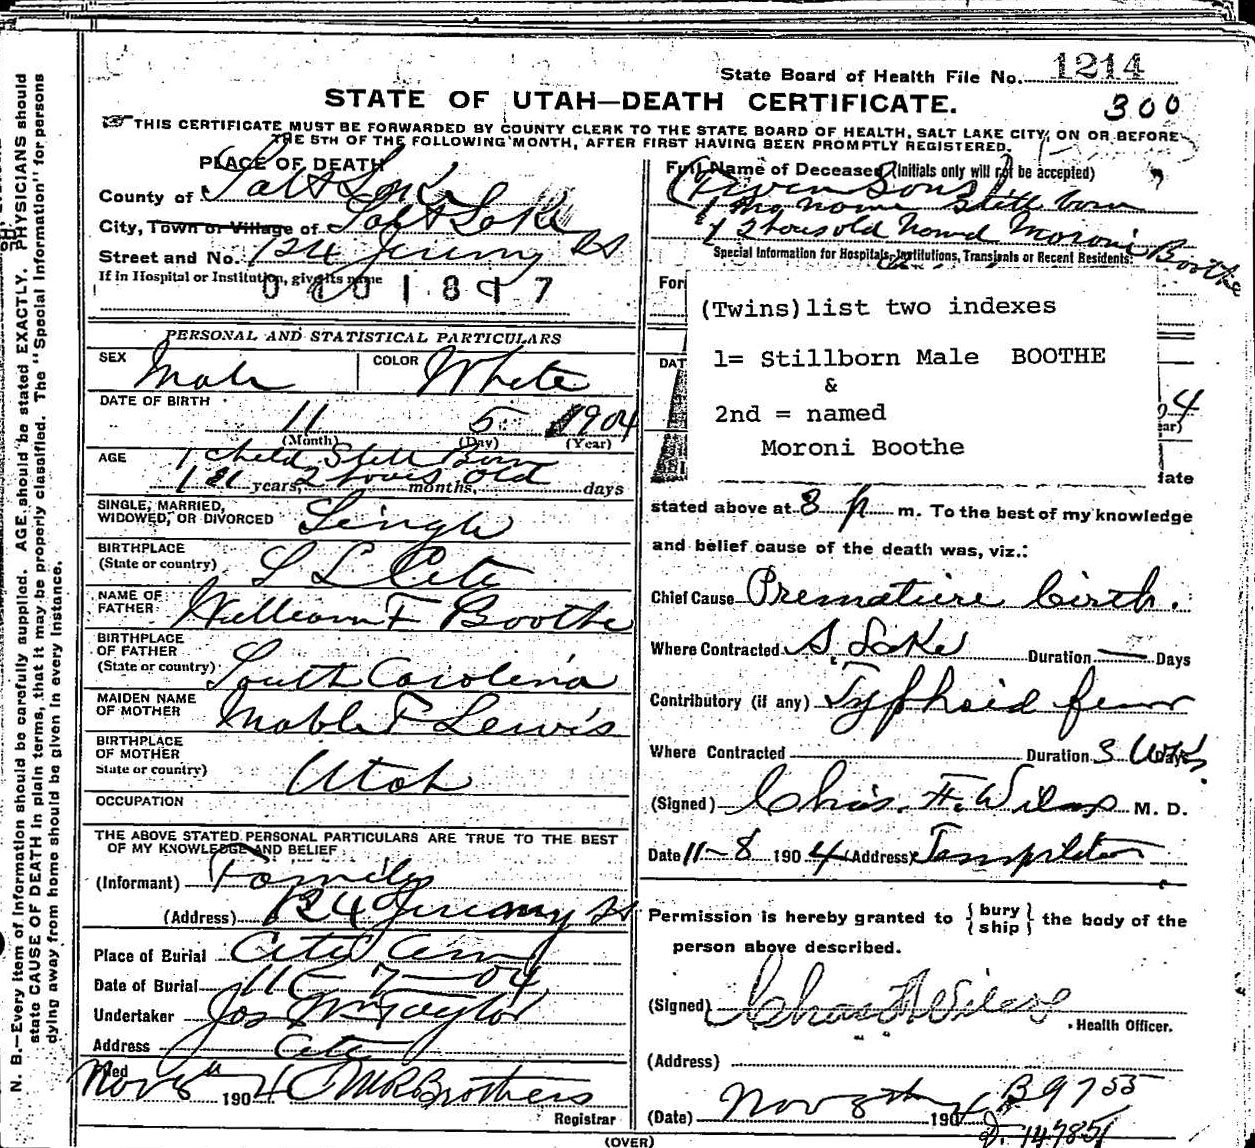 N. B.—Every item of information should be carefully supplied. AGE should be stated EXACTLY. PHYSICIANS should
state CAUSE OF DEATH in plain terms, that it may be properly classified. The "Special Information" for persons
dying away from home should be given in every instance.
State Board of Health File No. 1214
STATE OF UTAH—DEATH CERTIFICATE.
300
THIS CERTIFICATE MUST BE FORWARDED BY COUNTY CLERK TO THE STATE BOARD OF HEALTH, SALT LAKE CITY, ON OR BEFORE
THE 5TH OF THE FOLLOWING MONTH, AFTER FIRST HAVING BEEN PROMPTLY REGISTERED.
PLACE OF DEATH
County of Salt Lake
City, Town or Village of Salt Lake
Street and No. 124 Jeremy St
If in Hospital or Institution, give its name
0401817
PERSONAL AND STATISTICAL PARTICULARS
SEX Male COLOR White
DATE OF BIRTH
11 5 1904
(Month) (Day) (Year)
AGE 1 Child Still Born
1 2 hours old
years, months, days
SINGLE, MARRIED,
WIDOWED, OR DIVORCED Single
BIRTHPLACE
(State or country) S L City
NAME OF
FATHER William F Boothe
BIRTHPLACE
OF FATHER
(State or country) South Carolina
MAIDEN NAME
OF MOTHER Mable F Lewis
BIRTHPLACE
OF MOTHER
State or country) Utah
OCCUPATION
THE ABOVE STATED PERSONAL PARTICULARS ARE TRUE TO THE BEST
OF MY KNOWLEDGE AND BELIEF
(Informant) Family
(Address) 124 Jeremy St
Place of Burial City Cem
Date of Burial 11-7-04
Undertaker Jos Wm Taylor
Address City
Filed Nov 1904 Brothers
Registrar
(OVER)
Full Name of Deceased (Initials only will not be accepted)
Sons
1 no name Still born
1 2 hours old named Moroni Boothe
Special Information for Hospitals, Institutions, Transients or Recent Residents:
For
(Twins) list two indexes
1= Stillborn Male BOOTHE
&
2nd = named
Moroni Boothe
DAT
4
ear)
date
stated above at 8 p m. To the best of my knowledge
and belief cause of the death was, viz.:
Chief Cause Premature birth.
Where Contracted S. Lake Duration — Days
Contributory (if any) Typhoid fever
Where Contracted Duration 3 Wks Days
(Signed) Chas. F. Wilcox M. D.
Date 11-8 1904 (Address) Templeton
Permission is hereby granted to {bury ship} the body of the
person above described.
(Signed) Health Officer.
(Address)
(Date) Nov 1904
B 9755